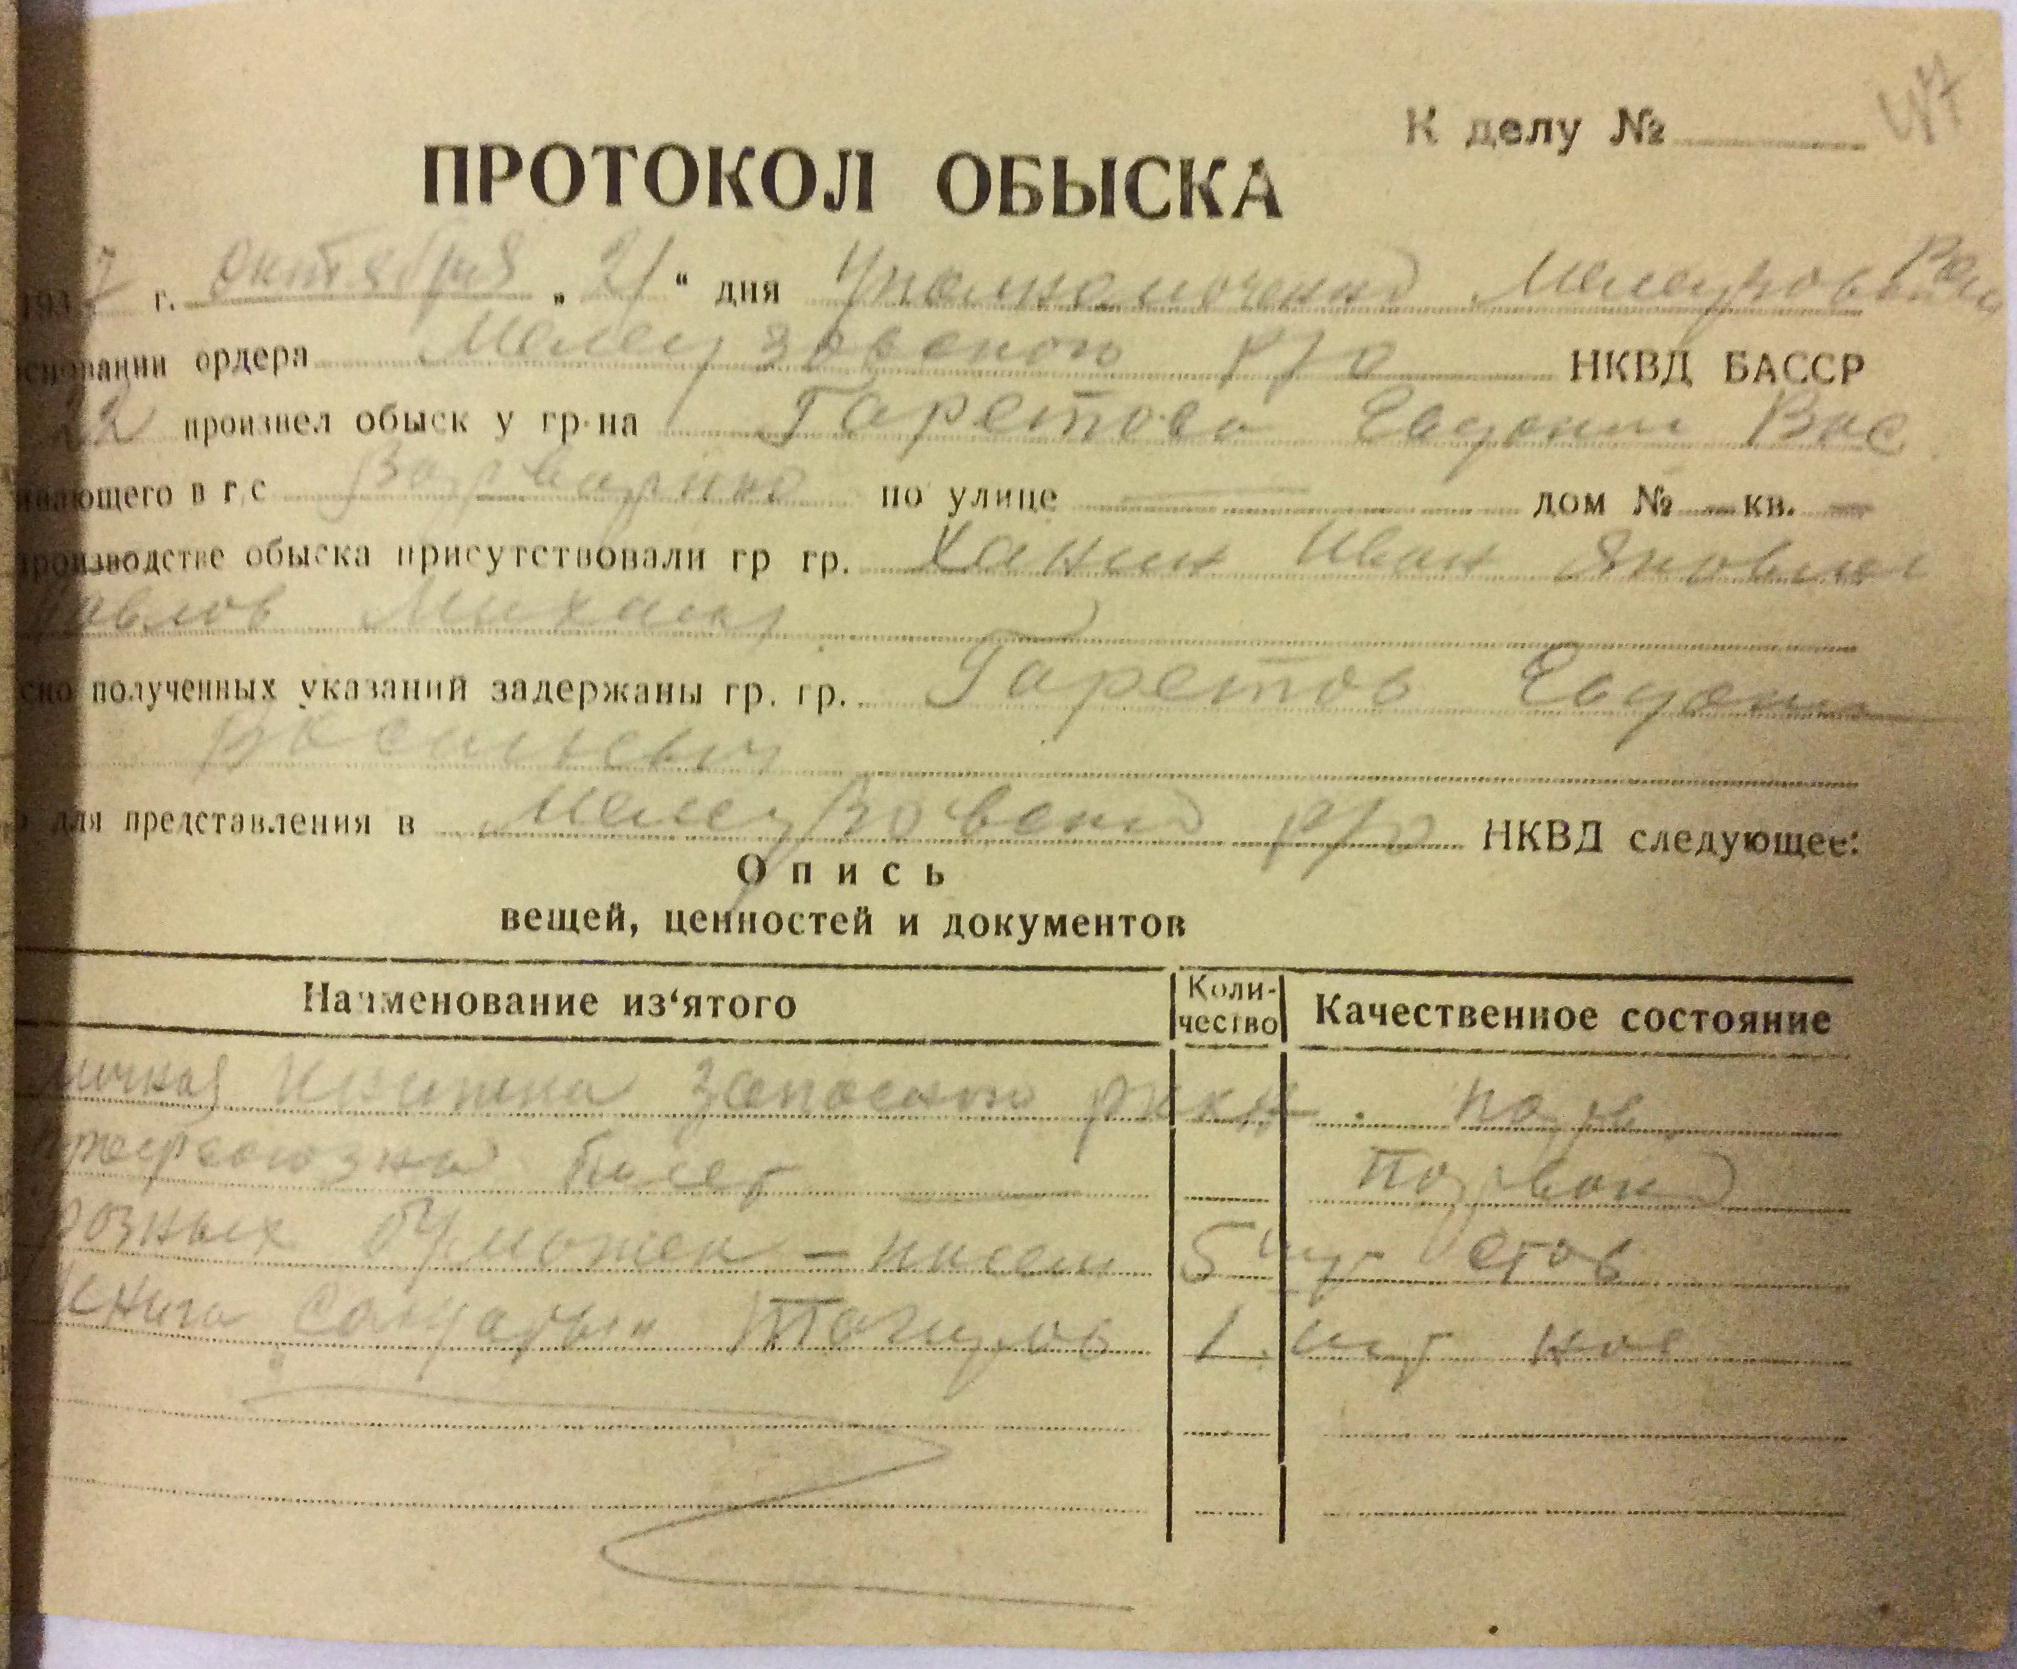 К делу №
ПРОТОКОЛ ОБЫСКА
1937 г. октября „21“ дня Уполномоченный
основании ордера Мелеузовского р/о НКВД БАССР
22 произвел обыск у гр-на Гаретова Евдоким Вас
ивающего в г. с Варварино по улице — дом № — кв. —
производстве обыска присутствовали гр гр. Ханин Иван Яковлев
Павлов Михаил
сно полученных указаний задержаны гр. гр. Гаретов Евдоким
Васильевич
о для представления в Мелеузовский р/о НКВД следующее:
Опись
вещей, ценностей и документов
Наименование из‘ятого Коли-чество Качественное состояние
личная книжка запасного РККА
билет —
розных бумажек – писем 5 шт
книга 1 шт